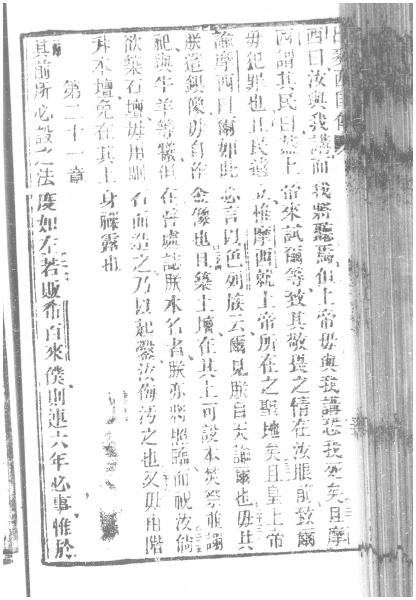 西曰汝與我講而我將聽焉但上帝毋與我講恐我死矣且摩
西謂其民曰蓋上帝來試爾等致其敬畏之情在汝眼前致爾
毋犯罪也且民遠立惟摩西就上帝所在之聖地矣且皇上帝
諭摩西曰爾如此必言以色列族云爾見朕自天諭爾也毋共
朕造銀像毋自作金像也且築土壇在其上可設本焚祭權謝
祀與牛羊等犧但在普處誌朕本名者朕亦將照臨而祝汝倘
欲築石壇毋用雕石而築之乃以起鑿汝侮污之也又毋用階
升本壇免在其上身裸露也
第二十一章
其前所必設之法度如左若販希百來僕則連六年必事惟於